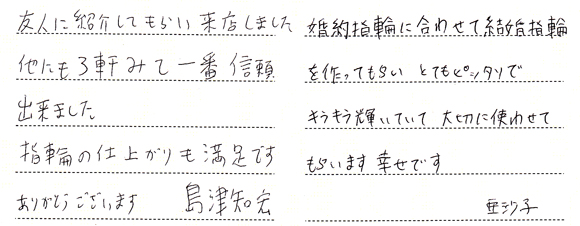 友人に紹介してもらい来店しました
他にも3軒みて一番信頼
出来ました
指輪の仕上がりも満足です
ありがとうございます 島津知宏
婚約指輪に合わせて結婚指輪
を作ってもらい とてもピッタリで
キラキラ輝いていて 大切に使わせて
もらいます 幸せです
亜沙子